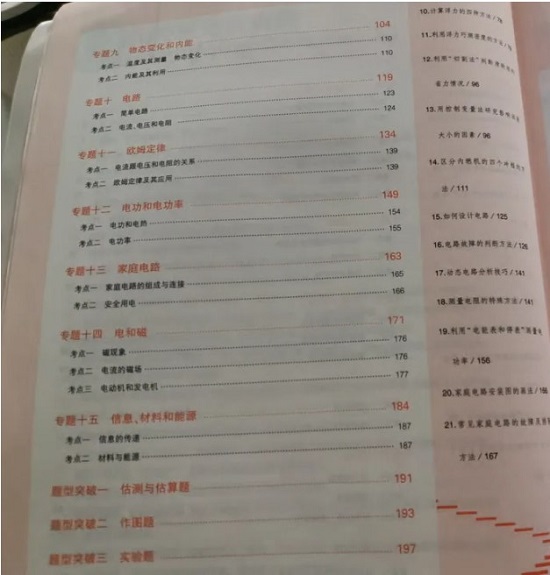 专题九 物态变化和内能 104
考点一 温度及其测量 物态变化 110
考点二 内能及其利用 110
专题十 电路 119
考点一 简单电路 123
考点二 电流、电压和电阻 124
专题十一 欧姆定律 134
考点一 电流跟电压和电阻的关系 139
考点二 欧姆定律及其应用 139
专题十二 电功和电功率 149
考点一 电功和电热 154
考点二 电功率 155
专题十三 家庭电路 163
考点一 家庭电路的组成与连接 165
考点二 安全用电 166
专题十四 电和磁 171
考点一 磁现象 176
考点二 电流的磁场 176
考点三 电动机和发电机 177
专题十五 信息、材料和能源 184
考点一 信息的传递 187
考点二 材料与能源 187
题型突破一 估测与估算题 191
题型突破二 作图题 193
题型突破三 实验题 197
10.计算浮力的四种方法/78
11.利用浮力测密度的方法/79
12.利用“切割法”判断滑轮组
省力情况/96
13.用控制变量法研究影响
大小的因素/96
14.区分内燃机的四个冲程的方
法/111
15.如何设计电路/125
16.电路故障的判断方法/126
17.动态电路分析技巧/141
18.测量电阻的特殊方法/141
19.利用“电能表和停表”测量电
功率/156
20.家庭电路安装图的画法/166
21.常见家庭电路的故障及
方法/167